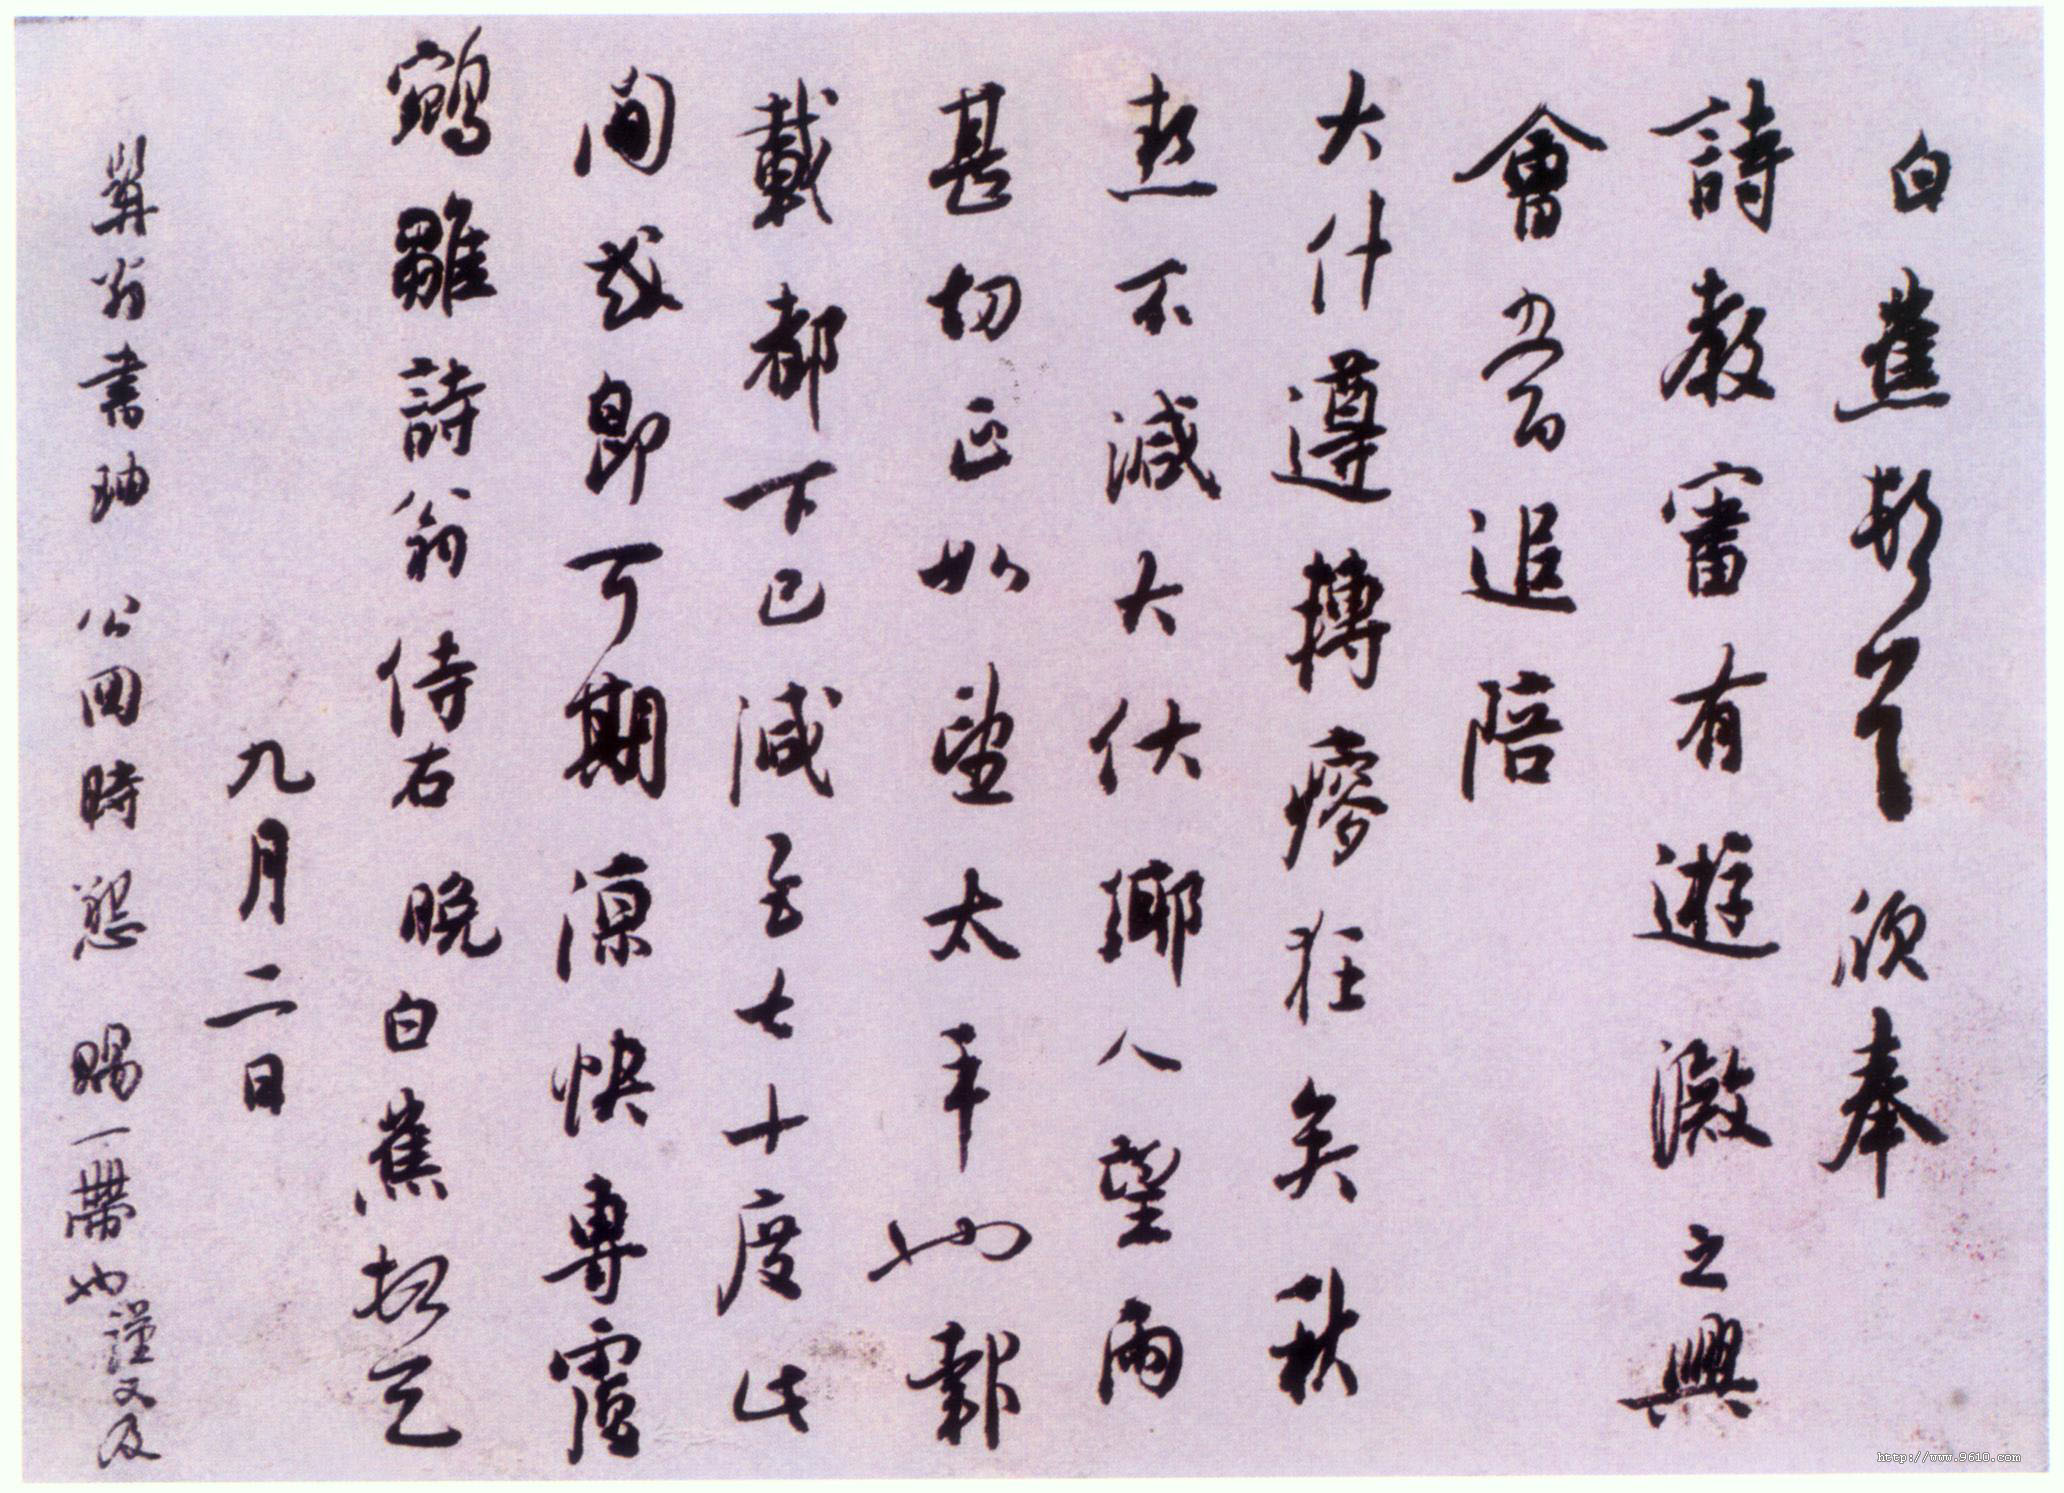 白蕉頓首頃奉
詩教審有遊澉之興
會當追陪
大什遵轉瘳狂矣秋
熱不減大伏鄉人望雨
甚切正如望太平也報
載都下已減至七十度此
間或即可期涼快專覆
鵷雛詩翁侍右 晚白蕉
九月二日
翁書 公回時懇 賜一帶也謹又及
http://www.9610.com